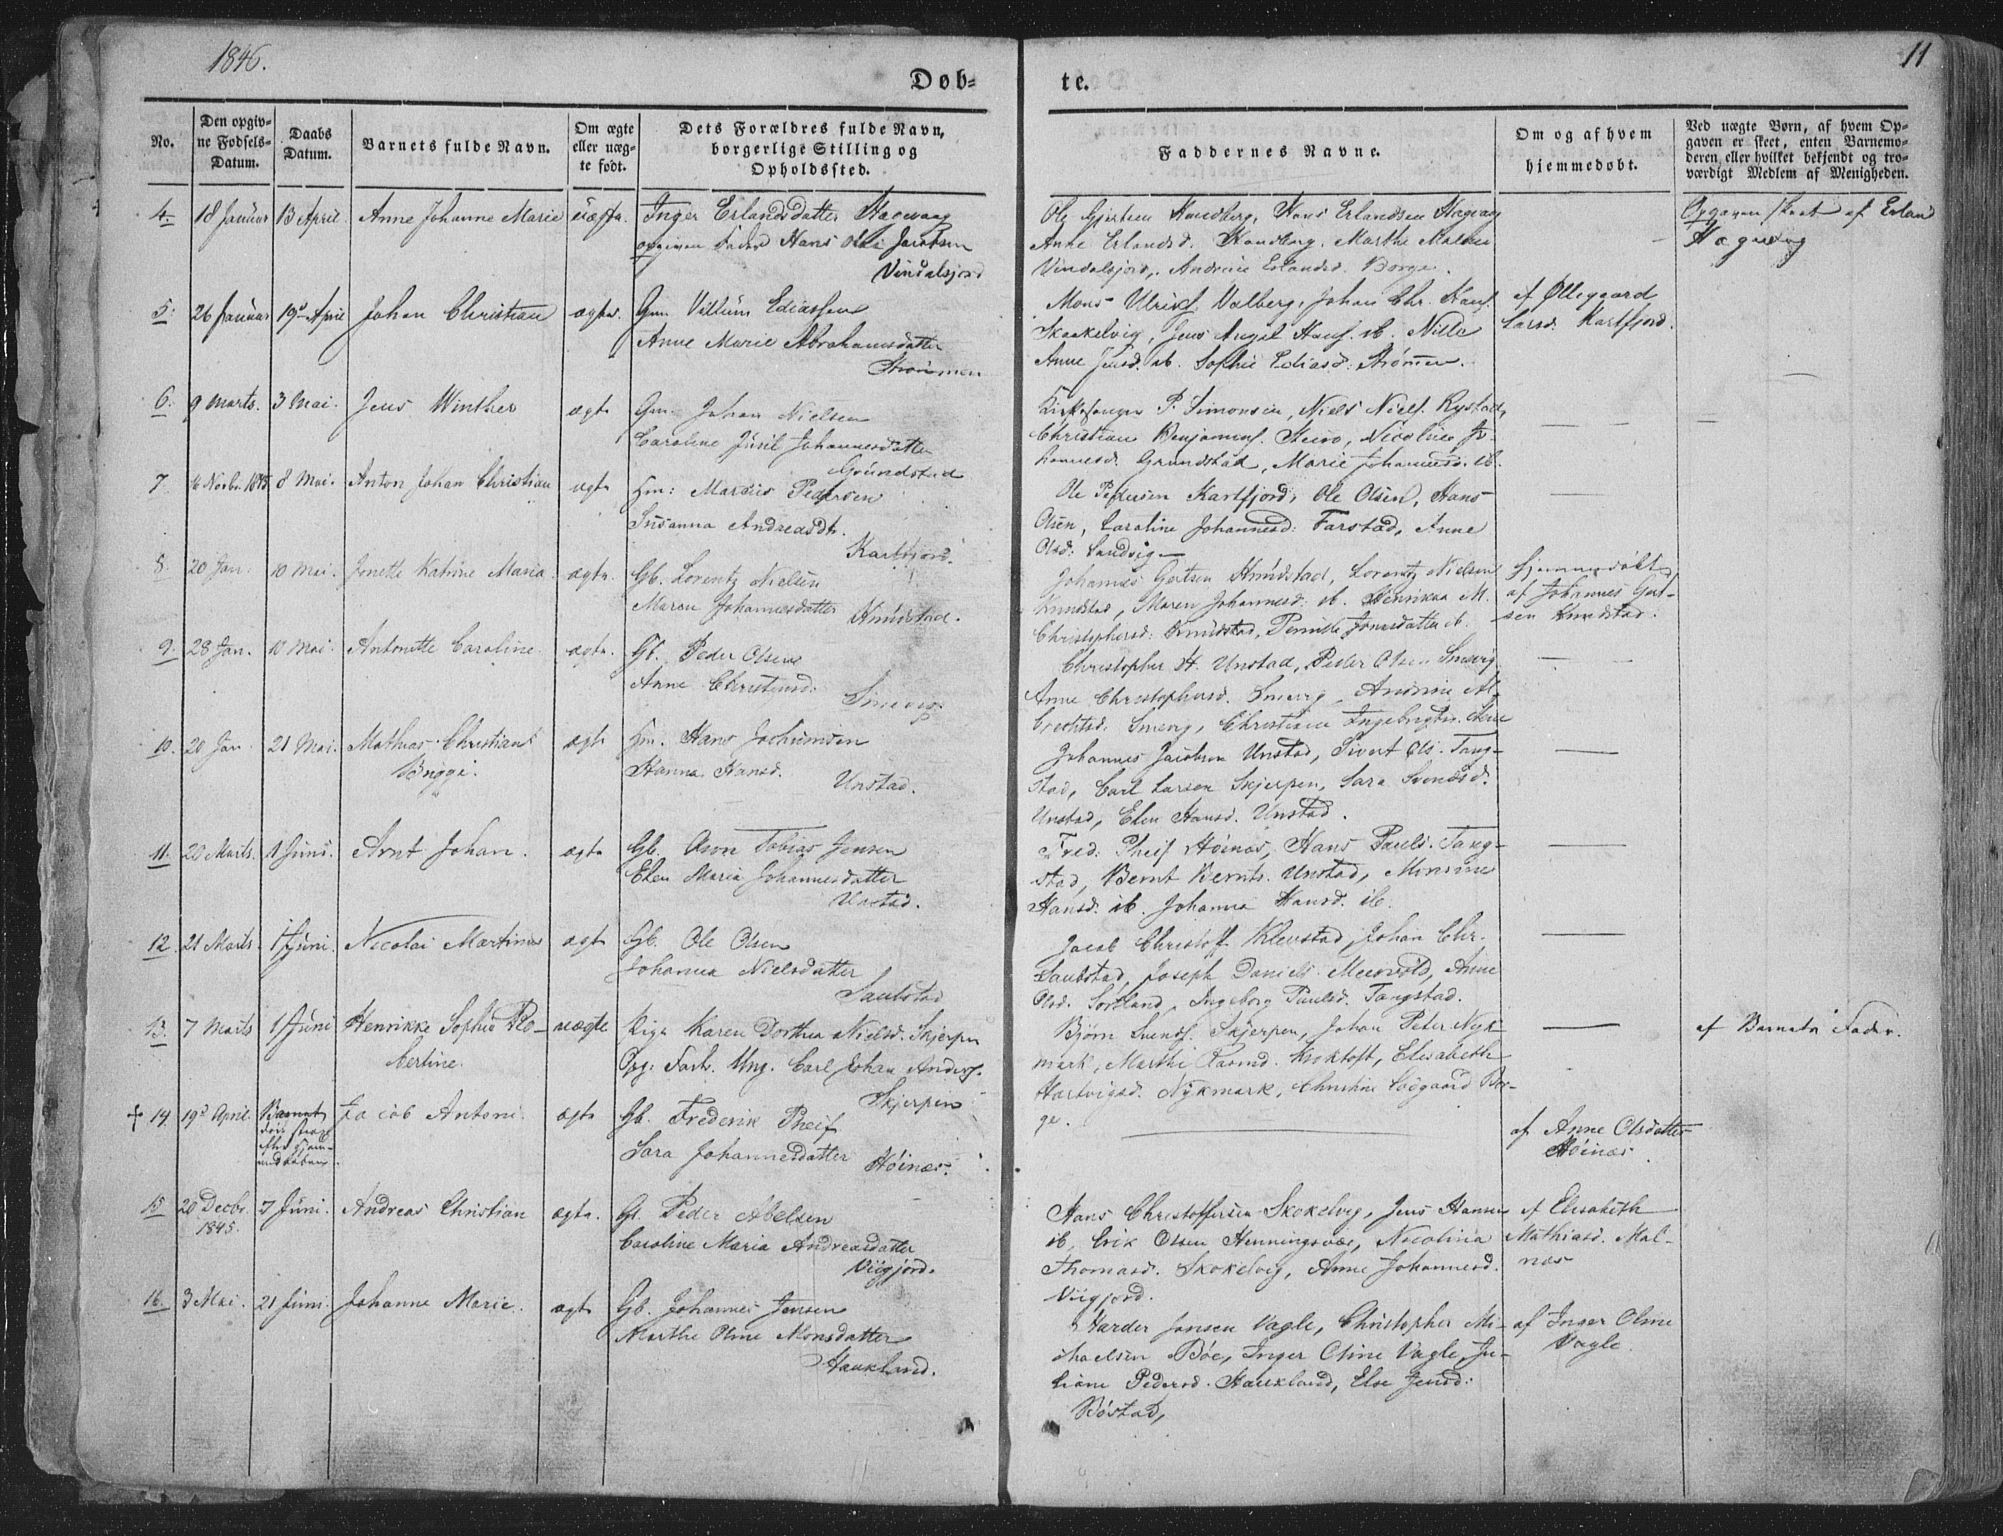 1846.
11
Døb-
te.
No.
Den opgiv-
ne Fødsels-
Datum.
Daabs
Datum.
Barnets fulde Navn.
Om ægte
eller uæg-
te født.
Dets Forældres fulde Navn,
borgerlige Stilling og
Opholdssted.
Faddernes Navne.
Om og af hvem
hjemmedøbt.
Ved uægte Børn, af hvem Op-
gaven er skeet, enten Barnemo-
deren, eller hvilket bekjendt og tro-
værdigt Medlem af Menigheden.
4. 18 Januar 13 April. Anne Johanne Marie uægte. Inger Erlandsdatter Hagevaag
opgiven Fader Hans Jacobsen
Vindalsjord
Ole Gjertsen Sandberg, Hans Erlandsen Hagvaag
Anne Erlandsd. Sandberg. Marthe
Vindalsjord, Andrine Erlandsd. Borge.
Opgaven skeet af Erland
Hagevaag
5. 26 Januar 19d April Johan Christian ægte. Gm. Villum Ediassen
Anne Marie Abrahamsdatter
Strømmen
Mons Ulrikss. Valberg, Johan Chr. Hanss.
Skaakelvig, Jens Angel Hanss. ib. Nille
Anne Jensd. ib. Sophie Ediasd. Strømmen.
af Øllegaard
Larsd. Kartfjord.
6. 9 Marts. 3 Mai. Jens Winther ægte Gm. Johan Nielsen
Caroline Johannesdatter
Grundstad
Kirkesanger P. Simonsen, Niels Niels. Rystad,
Christian Benjamins. Steiro, Nicoline Jo-
hannesd. Grundstad, Marie Johannesd. ib.
7. 16 Novbr. 1845 8 Mai. Anton Johan Christian ægte Hm: Marius Pedersen
Susanna Andreasdt.
Kartfjord.
Ole Pedersen Kartfjord, Ole Olsen, Hans
Olsen, Caroline Johannesd: Farstad, Anne
Olsd: Sandvig
8. 20 Jan. 10 Mai. Jonette Katrine Maria ægte. Gb. Lorentz Nielsen
Maren Johannesdatter
Knudstad.
Johannes Gertsen Knudstad, Lorentz Nielsen
Knudstad, Maren Johannesd: ib. Henrikka M.
Christophersd: Knudstad, Pernille Jonasdatter ib.
Hjemmedøbt
af Johannes Gert-
sen Knudstad.
9. 28 Jan. 10 Mai. Antonette Caroline. ægte. Gb. Peder Olsen
Anne Christensd:
Smevig
Christopher H. Unstad, Peder Olsen Smevig
Anne Christophersd. Smevig, Andrine
Smevig, Christian
10. 20 Jan. 21 Mai. Mathias Christian
Brygge. ægte Hm. Hans Jochumsen
Hanna Hansd.
Unstad.
Johannes Jacobsen Unstad, Sivert Ols. Tang-
stad, Carl Larsen Skjerpen, Sara
Unstad, Elen Hansd. Unstad.
11. 20 Marts. 1 Juni. Arnt Johan. ægte Gb. Aron Tobias Jensen
Elen Maria Johannesdatter
Unstad.
Fred: Pheif Høinæs, Hans Pauls. Tang-
stad, Bernt Bernts. Unstad,
Hansd. ib. Johanna Hansd. ib.
12. 21 Marts. 1 Juni. Nicolai Martinus ægte Gb. Ole Olsen
Johanna Nielsdatter
Saubstad
Jacob Christoff. Klevstad, Johan Chr.
Saubstad, Joseph Daniels. Meervold, Anne
Olsd. Sortland, Ingeborg Paulsd. Tangstad.
13. 7 Marts 1 Juni Henrikke Sophie Ro-
bertine. uægte Pige Karen Dorthea Nielsd. Skjerpen
Opg. Fader. Ung. Carl Johan Anders.
Skjerpen
Bjørn Svends. Skjerpen, Johan Peter Nyk-
mark, Marthe Rasmd. Kroktoft, Elisabeth
Hartvigsd. Nykmark, Christine Løgaard Bor-
ge.
af Barnets Fader.
+ 14. 19d April. Barnet
døde strax
efter Hjem-
medaaben. Jacob Antoni. ægte Gb. Frederik Pheif
Sara Johannesdatter Høinæs.
af Anne Olsdatter
Høinæs.
15 20 Decbr.
1845. 7 Juni. Andreas Christian ægte. Gb. Peder Abelsen
Caroline Maria Andreasdatter
Viigjord.
Hans Christoffersen Skokelvig, Jens Hansen
ib. Erik Olsen Henningsvær, Nicolina
Thomasd. Skokelvig, Anne Johannesd.
Viigjord.
af Elisabeth
Mathiasd. Mal-
næs
16. 3 Mai. 21 Juni. Johanne Marie. ægte Gb. Johannes Jensen
Marthe Oline Monsdatter
Haukland.
Harder Jonsen Vagle, Christopher Mi-
chaelsen Bøe, Inger Oline Vagle, Ju-
liane Pedersd. Haukland, Else Jensd:
Bøstad,
af Inger Oline
Vagle